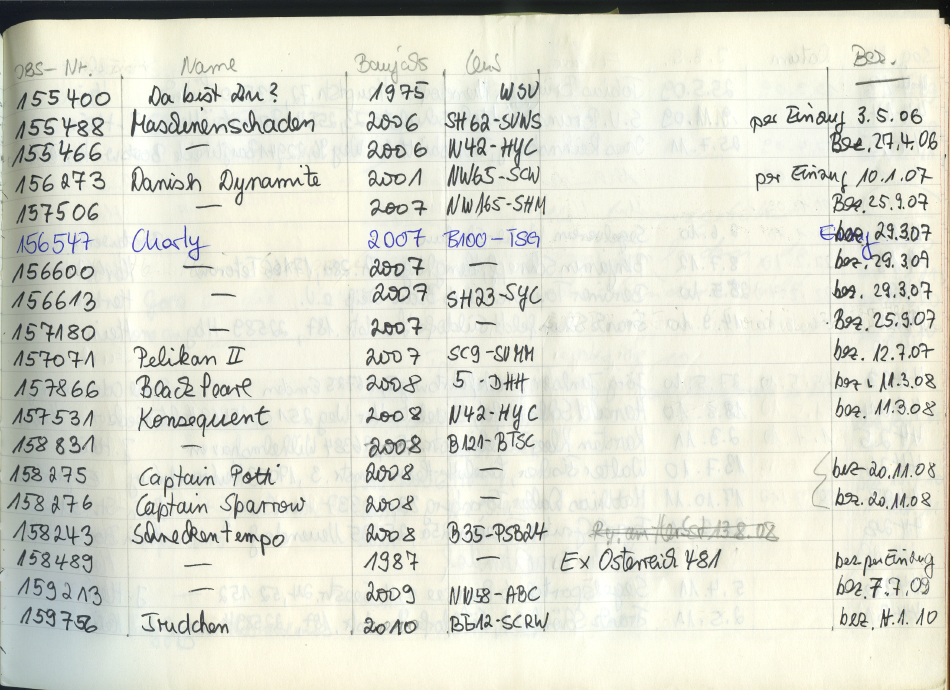 DBS-Nr. Name Baujahr Club Bez.
155400 Da bist Du? 1975 WSV
155488 Maschinenschaden 2006 SH62-SVWS per Einzug 3.5.06
155466 — 2006 N42-HYC Bez. 27.4.06
156273 Danish Dynamite 2001 NW65-SCW per Einzug 10.1.07
157506 — 2007 NW165-SHM Bez. 25.9.07
156547 Charly 2007 B100-TSG bez. 29.3.07
156600 — 2007 — bez. 29.3.07
156613 — 2007 SH23-SYC bez. 29.3.07
157180 — 2007 Bez. 25.9.07
157071 Pelikan II 2007 SC9-SVMM bez. 12.7.07
157866 Black Pearl 2008 5-DHH bez. 11.3.08
157531 Konsequent 2008 N42-HYC bez. 11.3.08
158831 — 2008 B121-BTSC
158275 Captain Potti 2008 — bez. 20.11.08
158276 Captain Sparrow 2008 — bez. 20.11.08
158243 Schneckentempo 2008 B35-PSB24
158489 — 1987 — Ex Österreich 481 bez per Einzug
159213 2009 NW58-ABC bez. 7.7.09
159756 Trudchen 2010 BB12-SCRW bez. 11.1.10